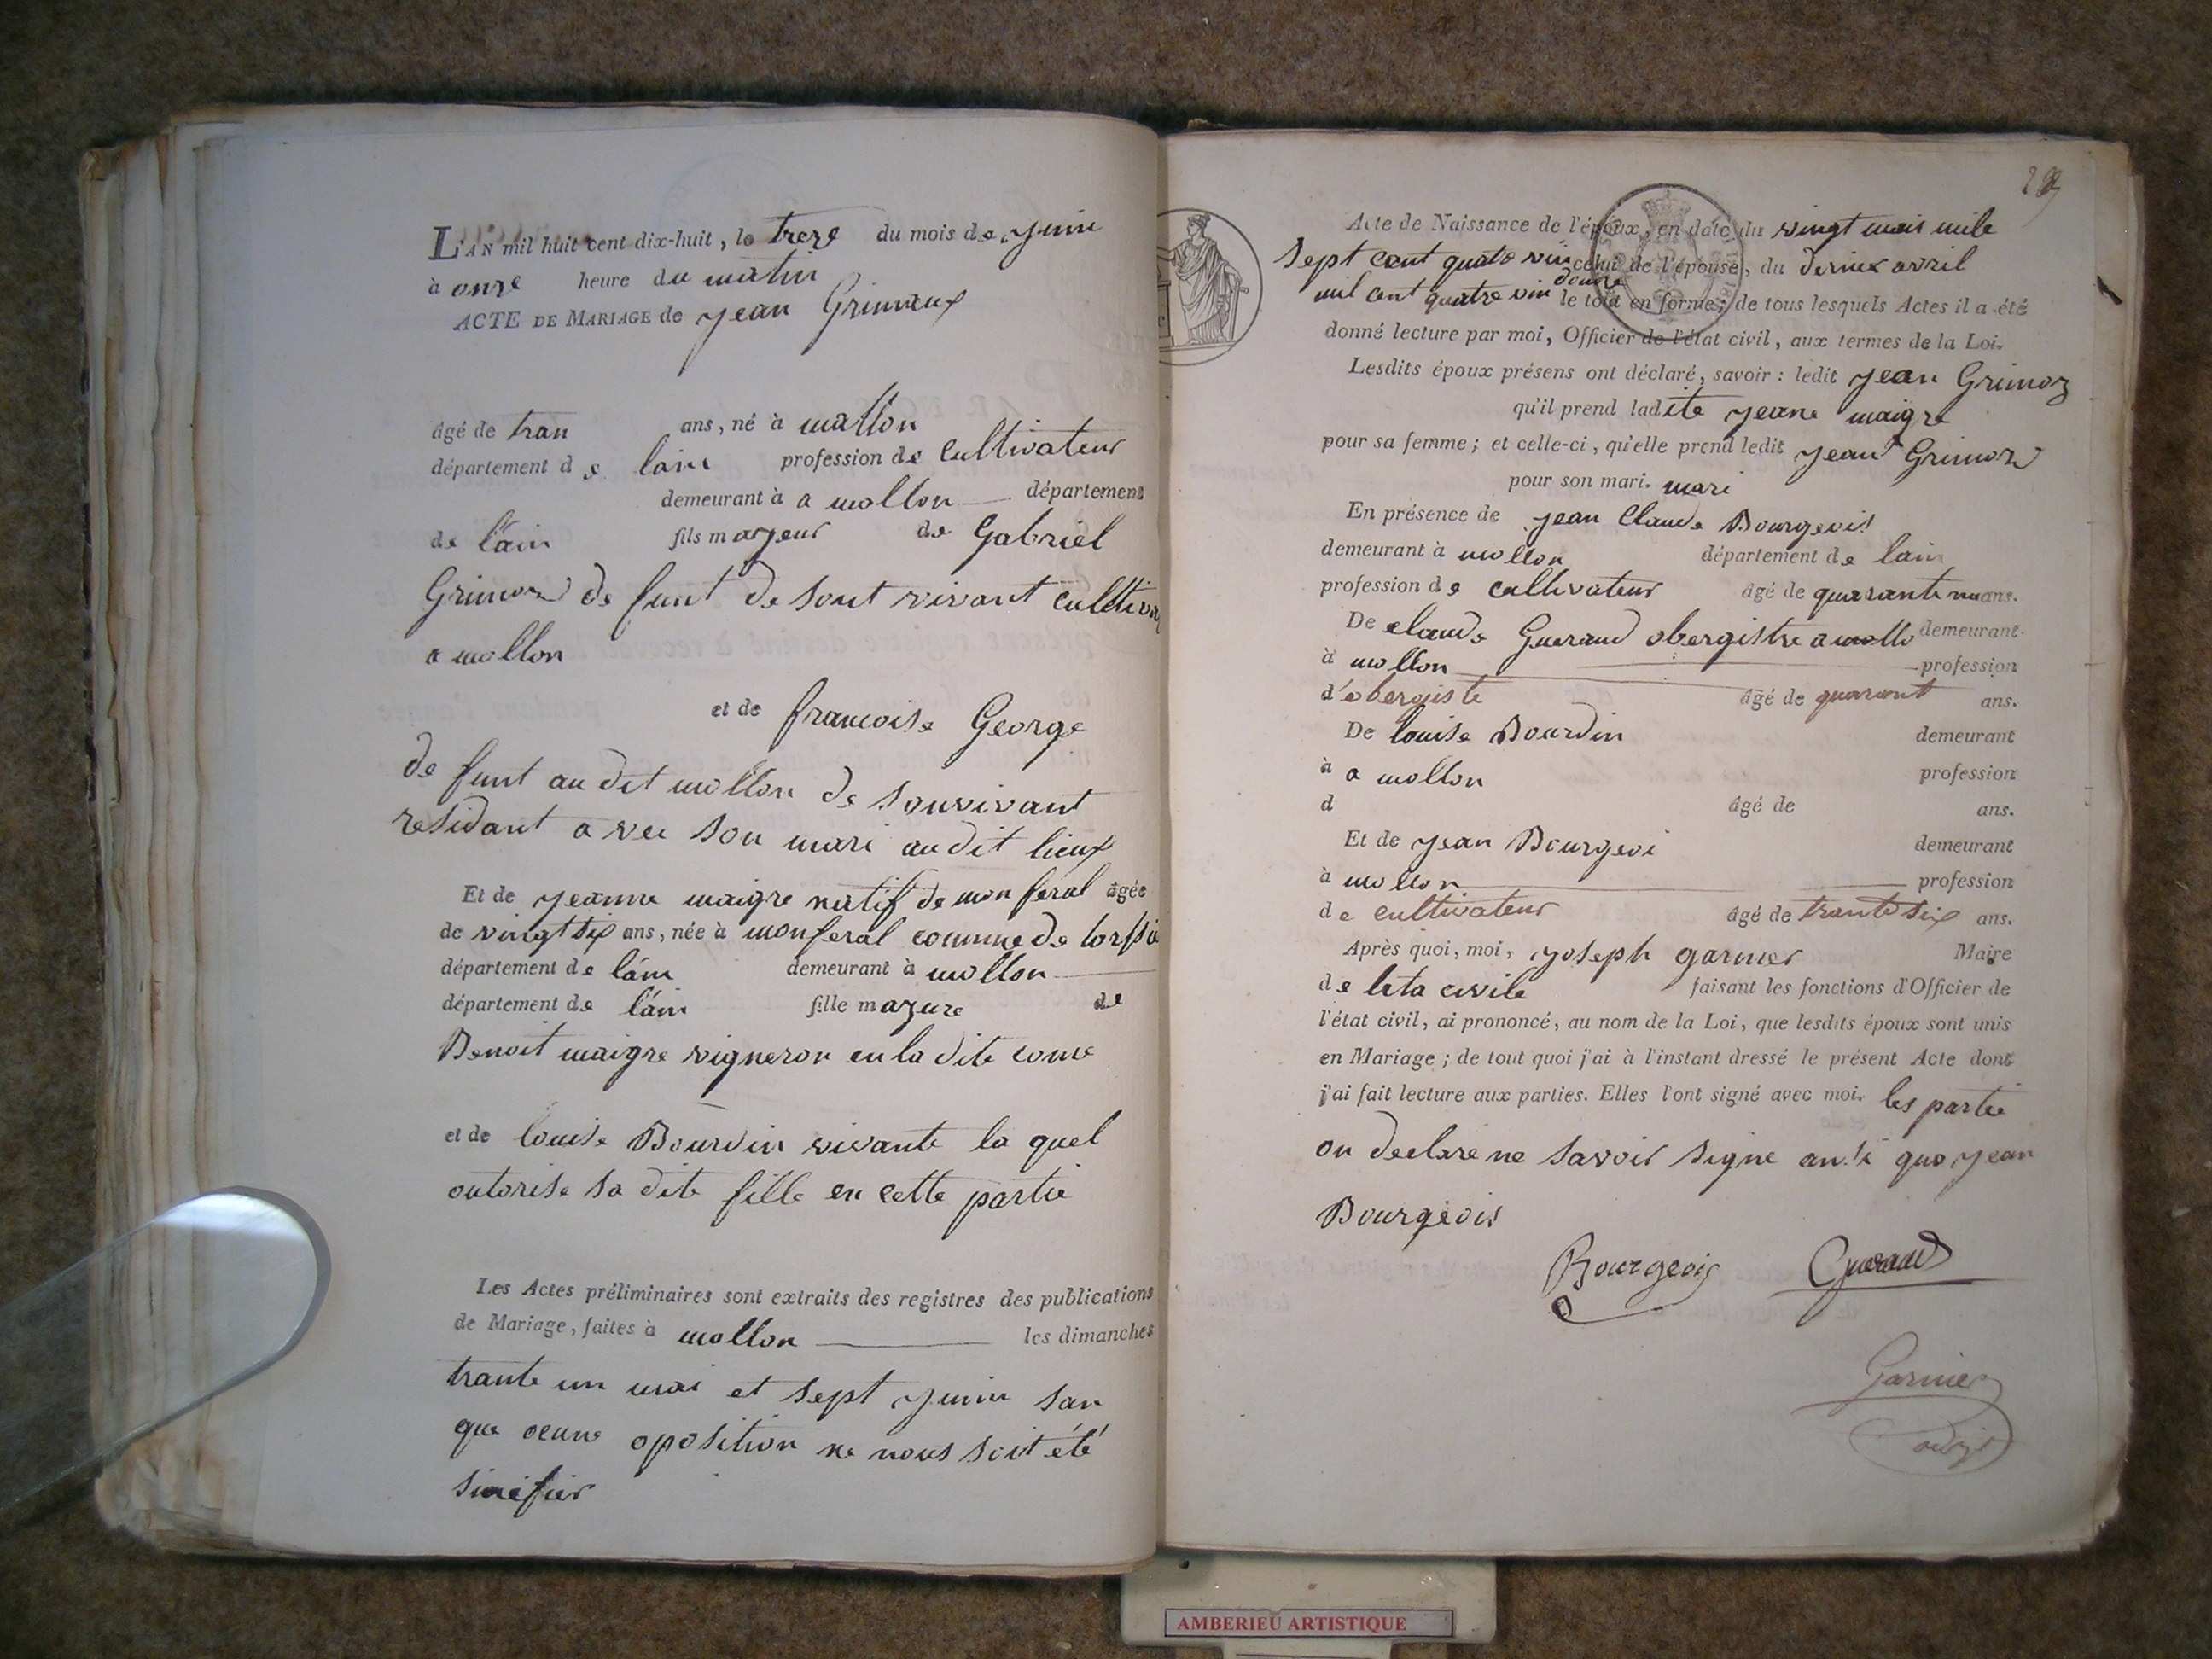 L'AN mil huit cent dix-huit, le treze du mois de juin
à onze heure du matin
ACTE DE MARIAGE de jean Grimaux
âgé de tran ans, né à mollon
département de lain profession de cultivateur
demeurant à a mollon département
de lain fils majeur de Gabriel
Grimoz de funt de sont vivant cultiva
a mollon
et de francoise George
de funt au dit mollon de souvivant
residant avec son mari au dit lieux
Et de jeanne maigre natif de mon feral âgée
de vingt six ans, née à monferal comune de
département de lain demeurant à mollon
département de lain fille mazure de
Benoit maigre vigneron en la dite come
et de louise Bourdin vivante la quel
outorise sa dite fille en cette partie
Les Actes préliminaires sont extraits des registres des publications
de Mariage, faites à mollon les dimanches
trante un mai et sept juin san
que ocune oposition ne nous soit été
sinifier
Acte de Naissance de l'époux, en date du vingt mai mile
sept cent quatre vin celui de l'épouse, du dernier avril
mil cent quatre vin douze le tout en forme; de tous lesquels Actes il a été
donné lecture par moi, Officier de l'état civil, aux termes de la Loi.
Lesdits époux présens ont déclaré, savoir : ledit jean Grimoz
qu'il prend ladite jeane maigre
pour sa femme; et celle-ci, qu'elle prend ledit jean Grimoz
pour son mari. mari
En présence de jean Claude Bourgeois
demeurant à mollon département de lain
profession de cultivateur âgé de quarante ans.
De claude Gueraud obergistre a mollo demeurant
à mollon profession
d'obergiste âgé de quarant ans.
De louise Bourdin demeurant
à a mollon profession
d âgé de ans.
Et de jean Bourgeoi demeurant
à mollon profession
de cultivateur âgé de trante six ans.
Après quoi, moi, joseph garnier Maire
de leta civile faisant les fonctions d'Officier de
l'état civil, ai prononcé, au nom de la Loi, que lesdits époux sont unis
en Mariage; de tout quoi j'ai à l'instant dressé le présent Acte dont
j'ai fait lecture aux parties. Elles l'ont signé avec moi. les partie
on declare ne savoir signe ansi que jean
Bourgeois
Bourgeois Gueraud
Garnier
adjt
AMBERIEU ARTISTIQUE